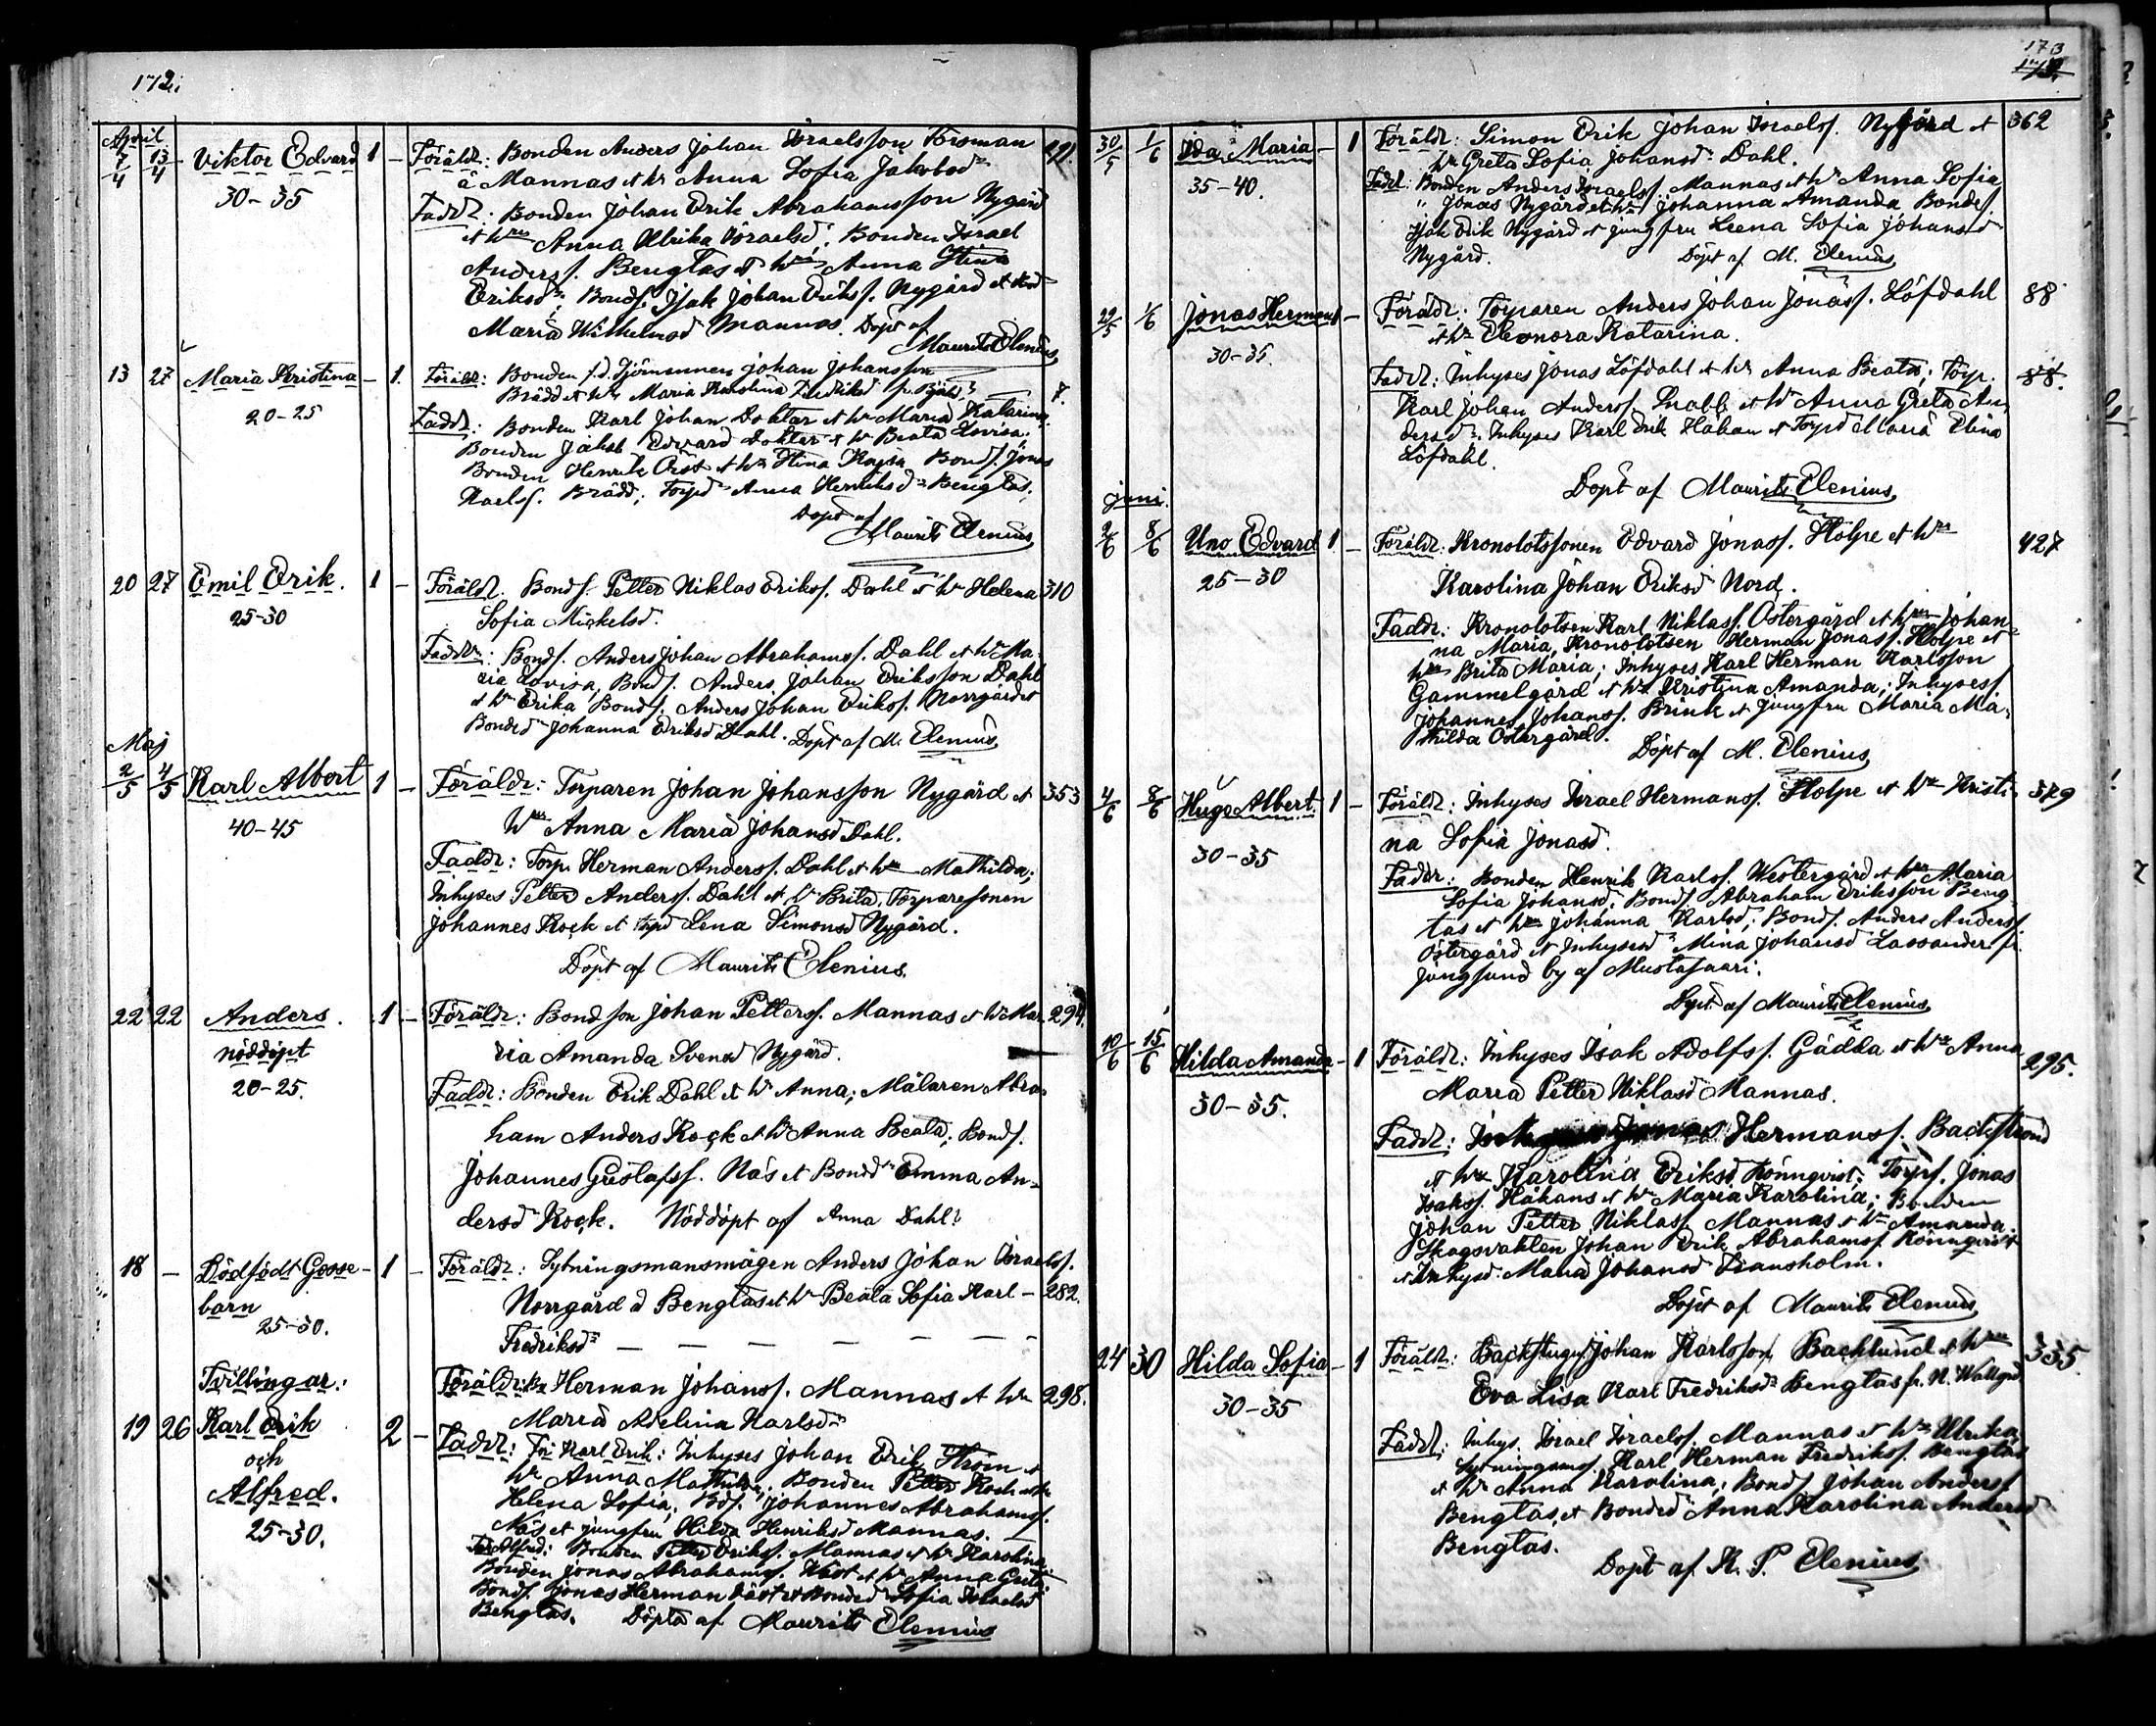 172.
April
7/4 13/4 Viktor Edvard 1 – Föräldr: Bonden Anders Johan Israelsson Forsman
30–35
å Mannas et hr Anna Sofia Jakobsdr
Faddr: Bonden Johan Erik Abrahamsson Nygård
et hru Anna Ulrika Israelsd; Bonden Israel
Anderss. Bengtas et hru Anna Stina
Eriksdr; Bonds. Isak Johan Erikss. Nygård et
Maria Wilhelmsd Mannas. Döpt af
Maurits Elenius
13 27 Maria Kristina – 1. Föräldr: Bonden f.d. Johan Johansson
20–25
Brädd et hru Maria Karolina Fredriksd fr. 7.
Faddr: Bonden Karl Johan Doktar et hr Maria Katarina
Bonden Jakob Edvard Doktar et hr Beata Lovisa.
Bonden Henrik et hr Stina Kajsa Bonds. Jonas
Karlss. Brädd; Torpd Anna Henriksd Bengtas.
Döpt af
Maurits Elenius
20 27 Emil Erik. 1 – Föräldr. Bonds. Petter Niklas Erikss. Dahl et hr Helena 310
25–30
Sofia Mickelsd.
Faddr: Bonds. Anders Johan Abrahamss. Dahl et hr Ma-
ria Lovisa, Bonds. Anders Johan Eriksson Dahl
et hr Erika Bonds. Anders Johan Erikss. Norrgård et
Bonded Johanna Eriksd Dahl. Döpt af M. Elenius
Maj
2/5 4/5 Karl Albert 1 – Föräldr: Torparen Johan Johansson Nygård et 353
40–45
hru Anna Maria Johansd Dahl.
Faddr: Torp. Herman Anderss. Dahl et hru Mathilda;
Inhyses Petter Anderss. Dahl et hr Brita, Torparesonen
Johannes Kock et torpd Lena Simonsd Nygård.
Döpt af Maurits Elenius.
22 22 Anders. 1 – Föräldr: Bondson Johan Petterss. Mannas et hr Ma- 294.
nöddöpt
20–25.
ria Amanda Svensd Nygård.
Faddr: Bonden Erik Dahl et hr Anna; Målaren Abra-
ham Anders Kock et hr Anna Beata; Bonds.
Johannes Gustafss. Näs et Bondd Emma An-
dersd Kock. Nöddöpt af Anna Dahl.
18 – Dödfödt Gosse- 1 – Föräldr: Sytningsmansmågen Anders Johan Israelss.
barn
25–30.
Norrgård å Bengtas et hr Beata Sofia Karl – 282.
Fredriksdr — — — — — —
Tvillingar: Föräldr: Herman Johanss. Mannas et hr 298.
Maria Adelina Karlsdr
19 26 Karl Erik 2 – Faddr: För Karl Erik: Inhyses Johan Erik Ström et
och
Alfred.
25–30.
hr Anna Mathilda, Bonden Petter Kock et hr
Helena Sofia, Bds. Johannes Abrahamss.
Näs et jungfru Hilda Henriksd Mannas.
För Alfred: Bonden Petter Erikss. Mannas et hr Karolina
Bonden Jonas Abrahamss. Näst et hr Anna Greta;
Bonds. Jonas Herman Näst et Bonded Sofia Israelsd
Bengtas. Döpta af Maurits Elenius
173
30/5 1/6 Ida Maria – 1 Föräldr: Simon Erik Johan Israelss. Nygård et 362
35–40.
hr Greta Sofia Johansd Dahl.
Faddr: Bonden Anders Israelss. Mannas et hr Anna Sofia
" Jonas Nygård et hru Johanna Amanda Bonds.
Isak Erik Nygård et jungfru Leena Sofia Johansd
Nygård. Döpt af M. Elenius
29/5 1/6 Jonas Herman 1 – Föräldr: Torparen Anders Johan Jonass. Löfdahl 88
30–35.
et hr Eleonora Katarina.
Faddr: Inhyses Jonas Löfdahl et hr Anna Beata; Torp. 88.
Karl Johan Anderss. Snabb et hr Anna Greta An-
dersd. Inhyses Karl Erik Håkan et Torpd Maria Elina
Löfdahl.
Döpt af Maurits Elenius
Juni.
2/6 8/6 Uno Edvard 1 – Föräldr: Kronolotssonen Edvard Jonass. Stolpe et hru 427
25–30
Karolina Johan Eriksd Nord.
Faddr: Kronolotsen Karl Niklass. Östergård et hru Johan-
na Maria, Kronolotsen Herman Jonass. Stolpe et
hru Brita Maria; Inhyses Karl Herman Karlsson
Gammelgård et hr Kristina Amanda; Inhysess.
Johannes Johanss. Brink et jungfru Maria Ma-
thilda Östergård.
Döpt af M. Elenius
4/6 8/6 Hugo Albert. 1 – Föräldr: Inhyses Israel Hermanss. Stolpe et hr Kristi- 379
30–35
na Sofia Jonasd.
Faddr: Bonden Henrik Karlss. Westergård et hru Maria
Sofia Johansd, Bonds. Abraham Eriksson Beng-
tas et hru Johanna Karlsd; Bonds. Anders Anderss.
Östergård et Inhysesd Mina Johansd Lassander fr.
Jungsund by af Mustasaari.
Döpt af Maurits Elenius
10/6 15/6 Hilda Amanda – 1 Föräldr: Inhyses Isak Adolfss. Gädda et hr Anna 295.
30–35.
Maria Petter Niklasd Mannas.
Faddr: Jonas Hermanss. Backstrand
et hru Karolina Eriksd Rönnqvist; Torps. Jonas
Isakss. Håkans et hr Maria Karolina; Bonden
Johan Petter Niklass. Mannas et hr Amanda.
Skogsvakten Johan Erik Abrahamss. Rönnqvist
et Inhysd. Maria Johansd Fransholm.
Döpt af Maurits Elenius
24 30 Hilda Sofia – 1 Föräldr: Backstugus. Johan Karlsson Backlund et hru 335.
30–35
Eva Lisa Karl Fredriksd Bengtas fr. N. Wallgrd.
Faddr: Inhys. Israel Israelss. Mannas et hr Ulrika,
Sytningsms. Karl Herman Fredrikss. Bengtas
et hr Anna Karolina; Bonds. Johan Anderss.
Bengtas, et Bonded Anna Karolina Andersd
Bengtas.
Döpt af K. P. Elenius